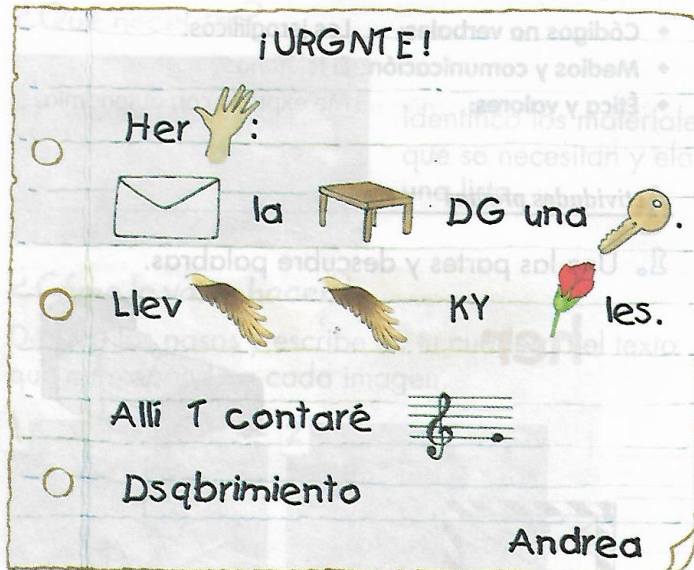 ¡URGNTE!
Her :
la DG una .
Llev KY les.
Allí T contaré
Dsqbrimiento
Andrea